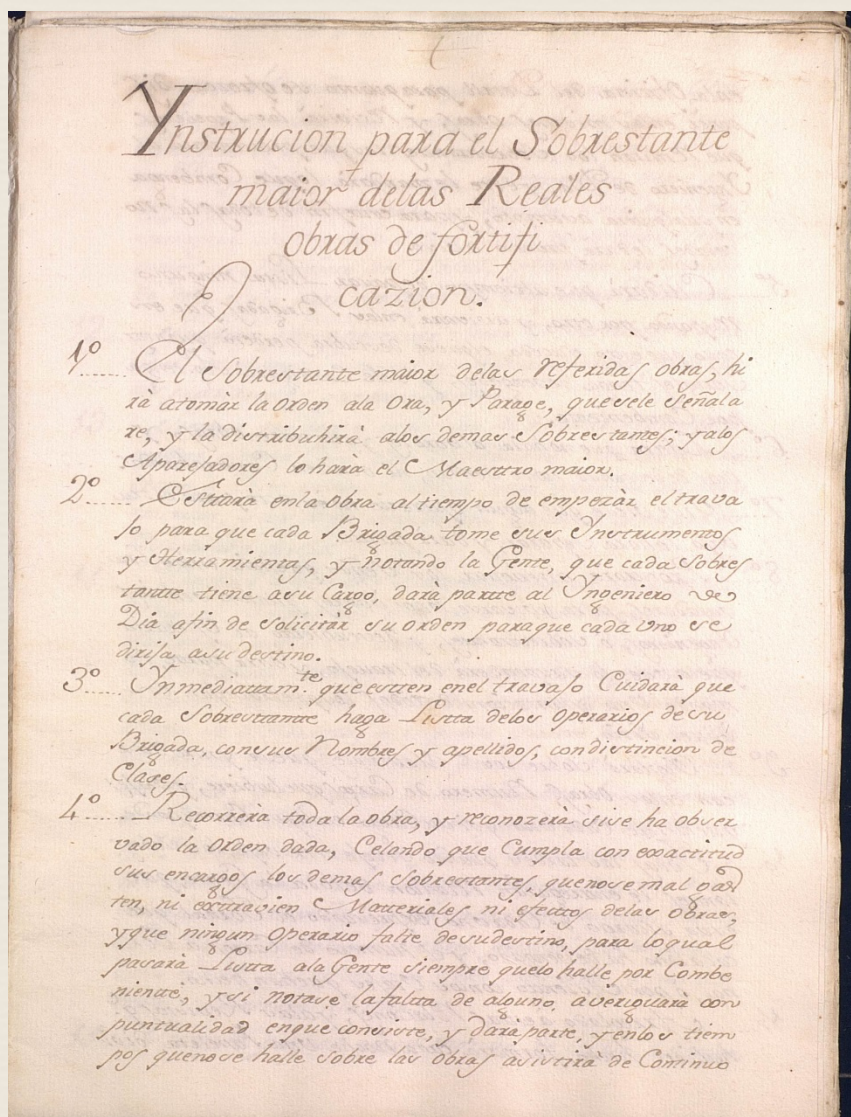 Ynstrucion para el Sobrestante
maior delas Reales
obras de fortifi
cazion.
1º El Sobrestante maior delas referidas obras, hi
rà atomàr la orden ala Ora, y Parage, quesele señala
re, y la distribuhirà alos demas Sobrestantes; yalos
Aparejadores lo harà el Maesttro maior.
2º Esttarà enla obra al tiempo de empezàr el trava
jo para que cada Brigada tome sus Ynstrumentos
y Herramientas, y notando la Gente, que cada Sobres
tantte tiene asu Cargo, darà partte al Yngeniero de
Dia afin de solicitàr su orden paraque cada uno se
dirija asu destino.
3º Ynmediattam.te que estten enel travajo Cuidarà que
cada Sobresttantte haga Listta delos operarios desu
Brigada, consus Nombres y apellidos, condistincion de
Clases.
4º Recorrerà toda la obra, y reconozerà sise ha obser
vado la orden dada, Celando que Cumpla con exactitud
sus encargos los demas Sobrestantes, quenosemal gas
ten, ni exttravien Matteriales ni efecttos delas obras,
yque ningun Operario falte desudestino, para loqual
pasarà Listta ala Gente siempre quelo halle por Combe
nientte, ysi notase la faltta de alguno, averiguarà con
punttualidad enque consiste, y darà parte, yenlos tiem
pos quenose halle sobre las obras asistirà de Continuo